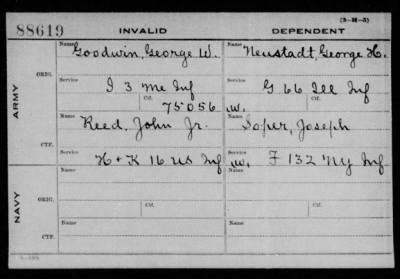 (3-M-3)
88619 INVALID DEPENDENT
ARMY
ORIG.
Name Goodwin, George W.
Name Neustadt, George H.
Service I 3 Me Inf
Service G 66 Ill Inf
Ctf. 75056
Ctf. W.
CTF.
Name Reed, John Jr.
Name Soper, Joseph
Service H + K 16 US Inf
Service W. F 132 Ny Inf
NAVY
ORIG.
Name
Name
Ctf.
Ctf.
CTF.
Name
Name